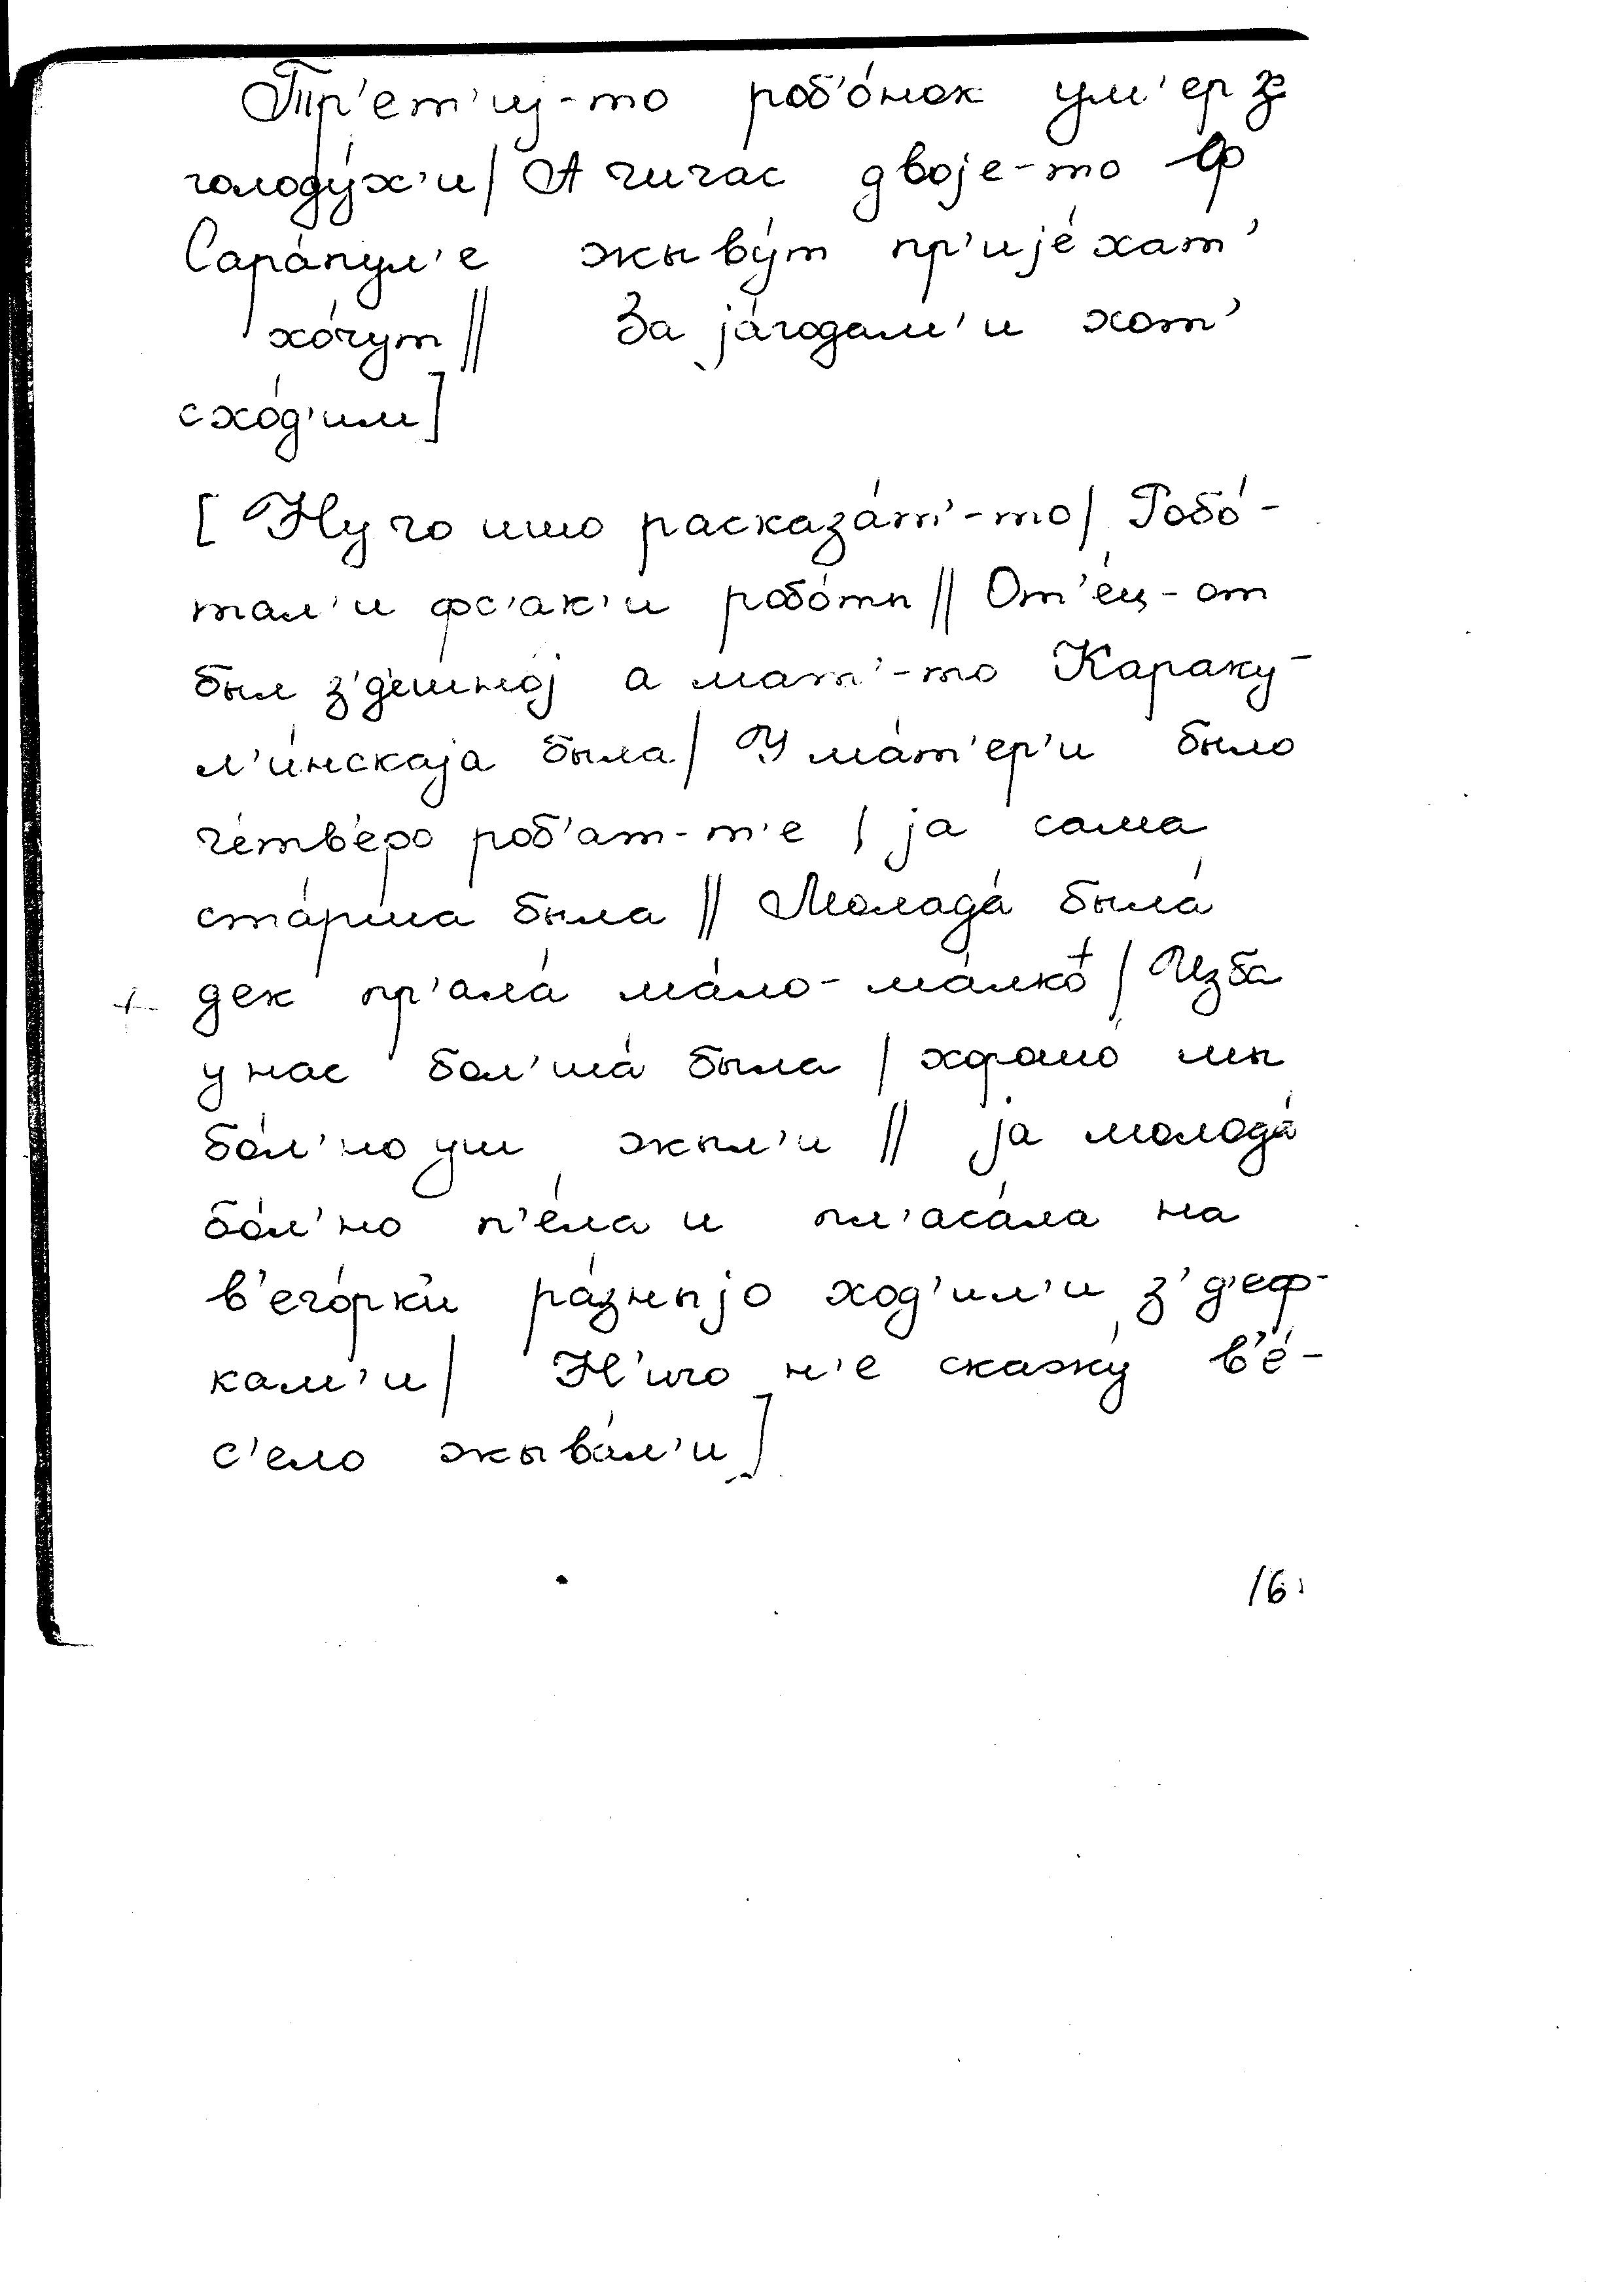 Тр'ет'иј-то роб'о́нок ум'ер з
голоду́х'и/ А чича́с двоје-то ф
Сара́пул'е жыву́т пр'ије́хат'
хо́чут // За ја́годам'и хот'
схо́д'им]
[ Ну чо ишо расказа́т'-то/ Робо́-
тал'и фс'ак'и робо́ты // От'е́ц-от
был з'д'ешној а мат'-то Караку-
л'и́нскаја была/ У ма́т'ер'и было
че́тв'еро роб'ат-т'е / ја сама
ста́рша была // Молада́ была́
дек пр'ала́ ма́ло-ма́лко+ / Изба
+
у нас бол'ша́ была / хорошо́ мы
бо́л'но уш жыл'и // ја молода́
бо́л'но п'е́ла и пл'аса́ла на
в'ечо́рк'и ра́зныјо ход'ил'и з'д'еф-
кам'и/ Н'ичо н'е скажу́ в'е́-
с'ело жыва́л'и]
16